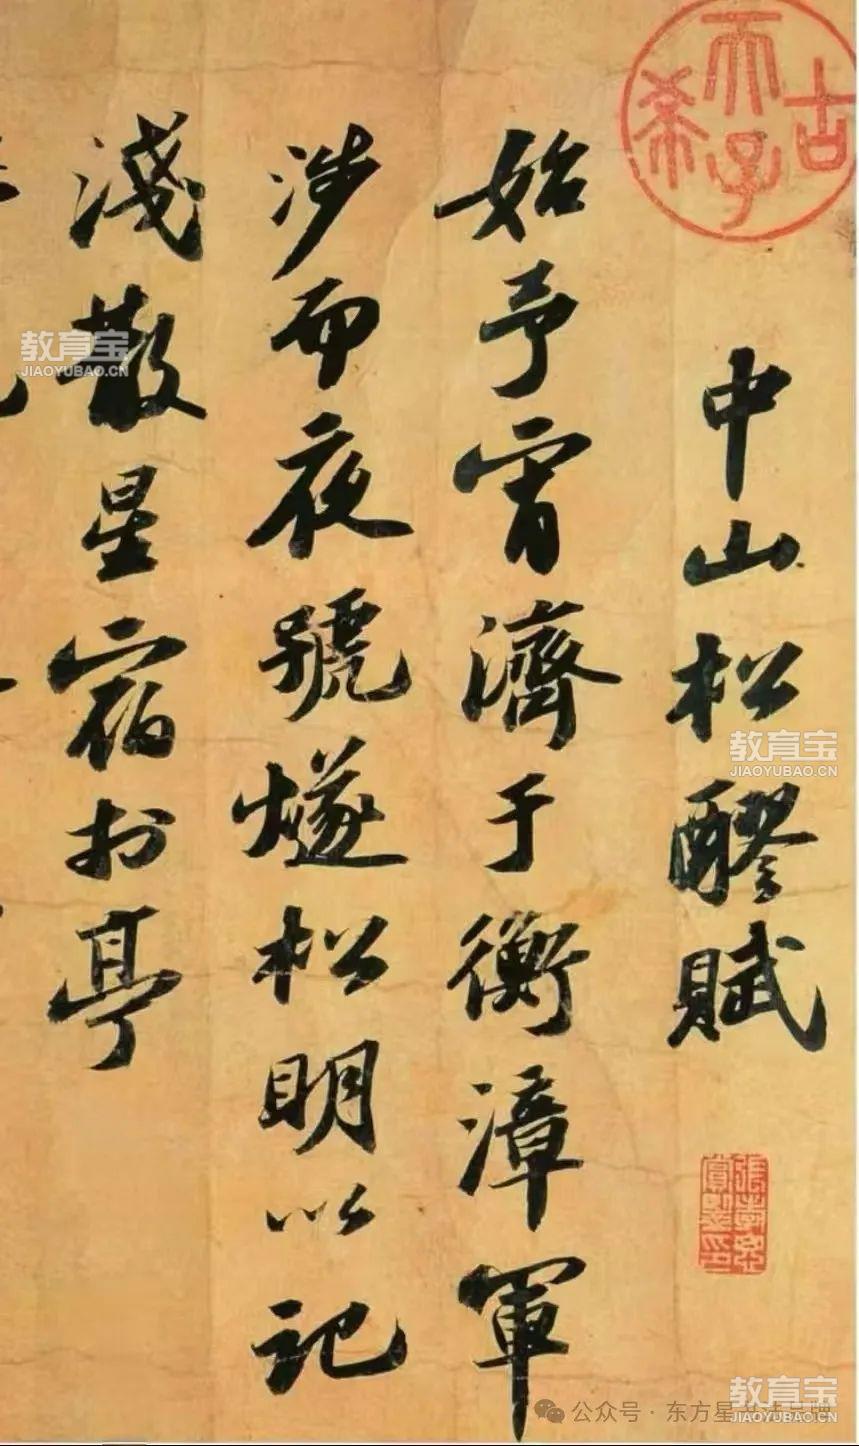 中山松醪賦
始予宵濟于衡漳軍
涉而夜號燧松明以記
淺散星宿於亭
古希天子
教育宝
JIAOYUBAO.CN
教育宝
JIAOYUBAO.CN
教育宝
JIAOYUBAO.CN
公众号·东方星